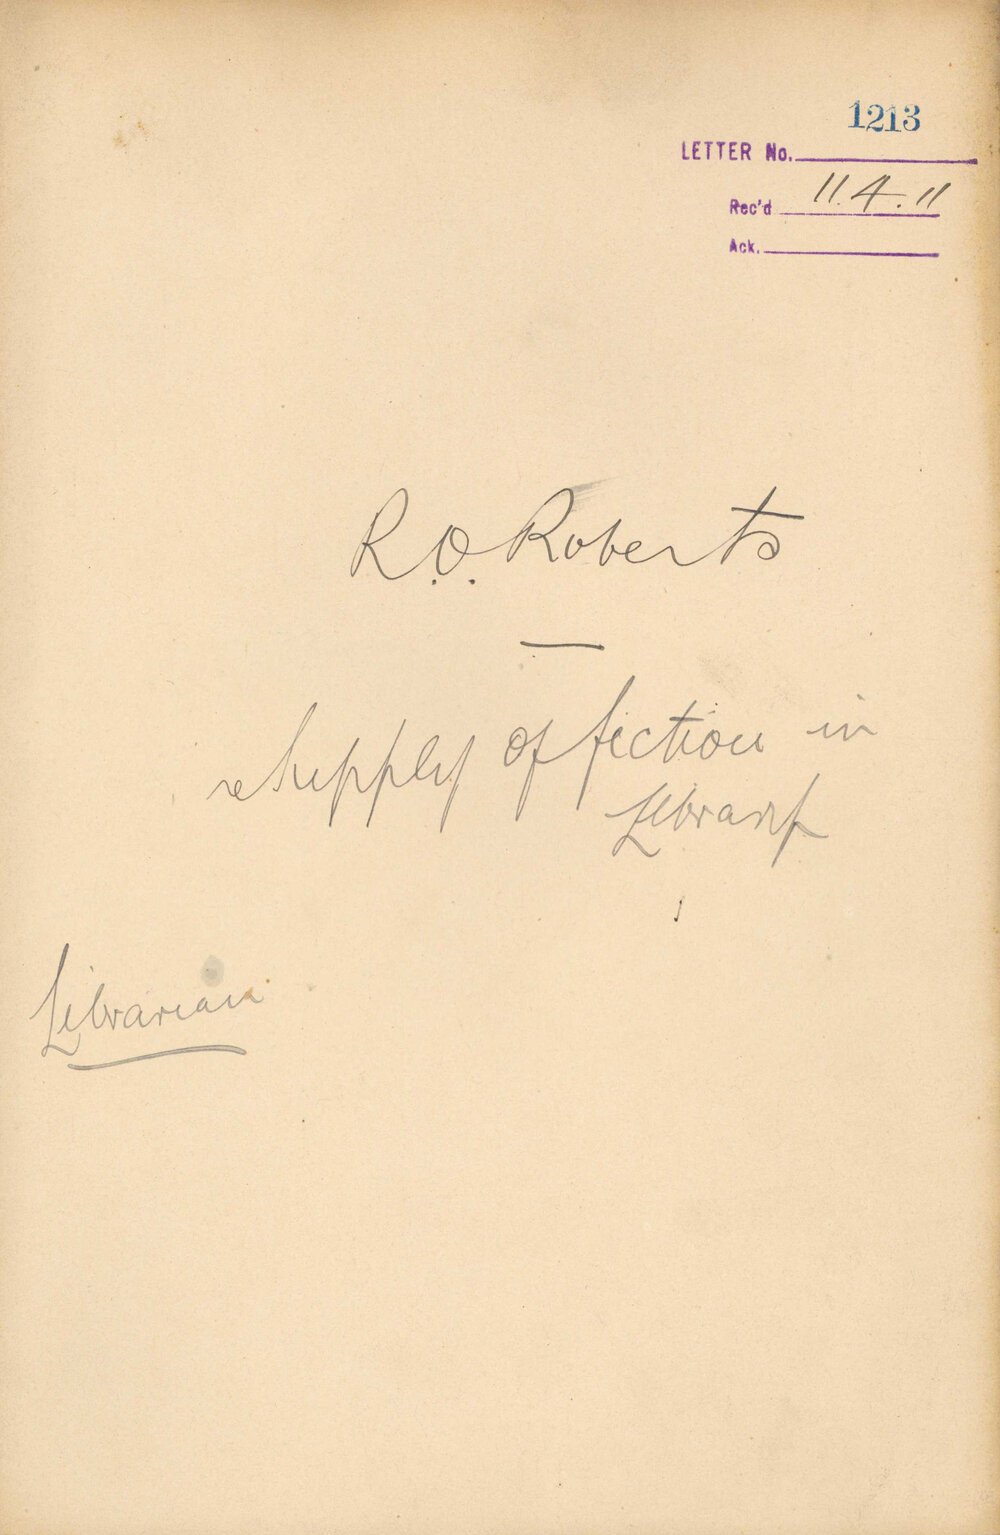 1213
LETTER No.
Rec'd 11.4.11
Ack.
R.O. Roberts
—
re Supply of fiction in
Library
Librarian